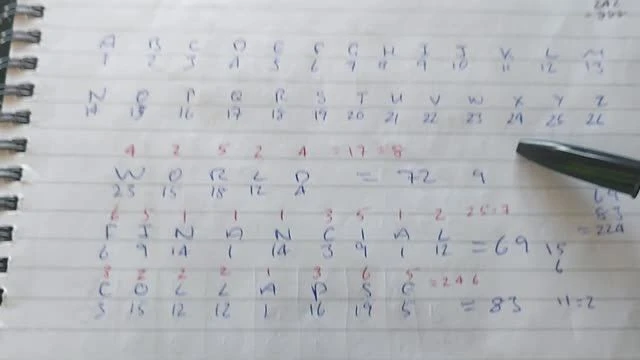 A B C D E F G H I J K L M
1 2 3 4 5 6 7 8 9 10 11 12 13
N O P Q R S T U V W X Y Z
14 15 16 17 18 19 20 21 22 23 24 25 26
4 2 5 2 4 =17=8
W O R L D = 72 9
23 15 18 12 4
6 5 1 1 1 3 5 1 2 25=7
F I N A N C I A L = 69 15
6 9 14 1 14 3 9 1 12 6
3 2 2 2 1 3 6 5 =24 6
C O L L A P S E = 83 11=2
3 15 12 12 1 16 19 5
69
83
=224